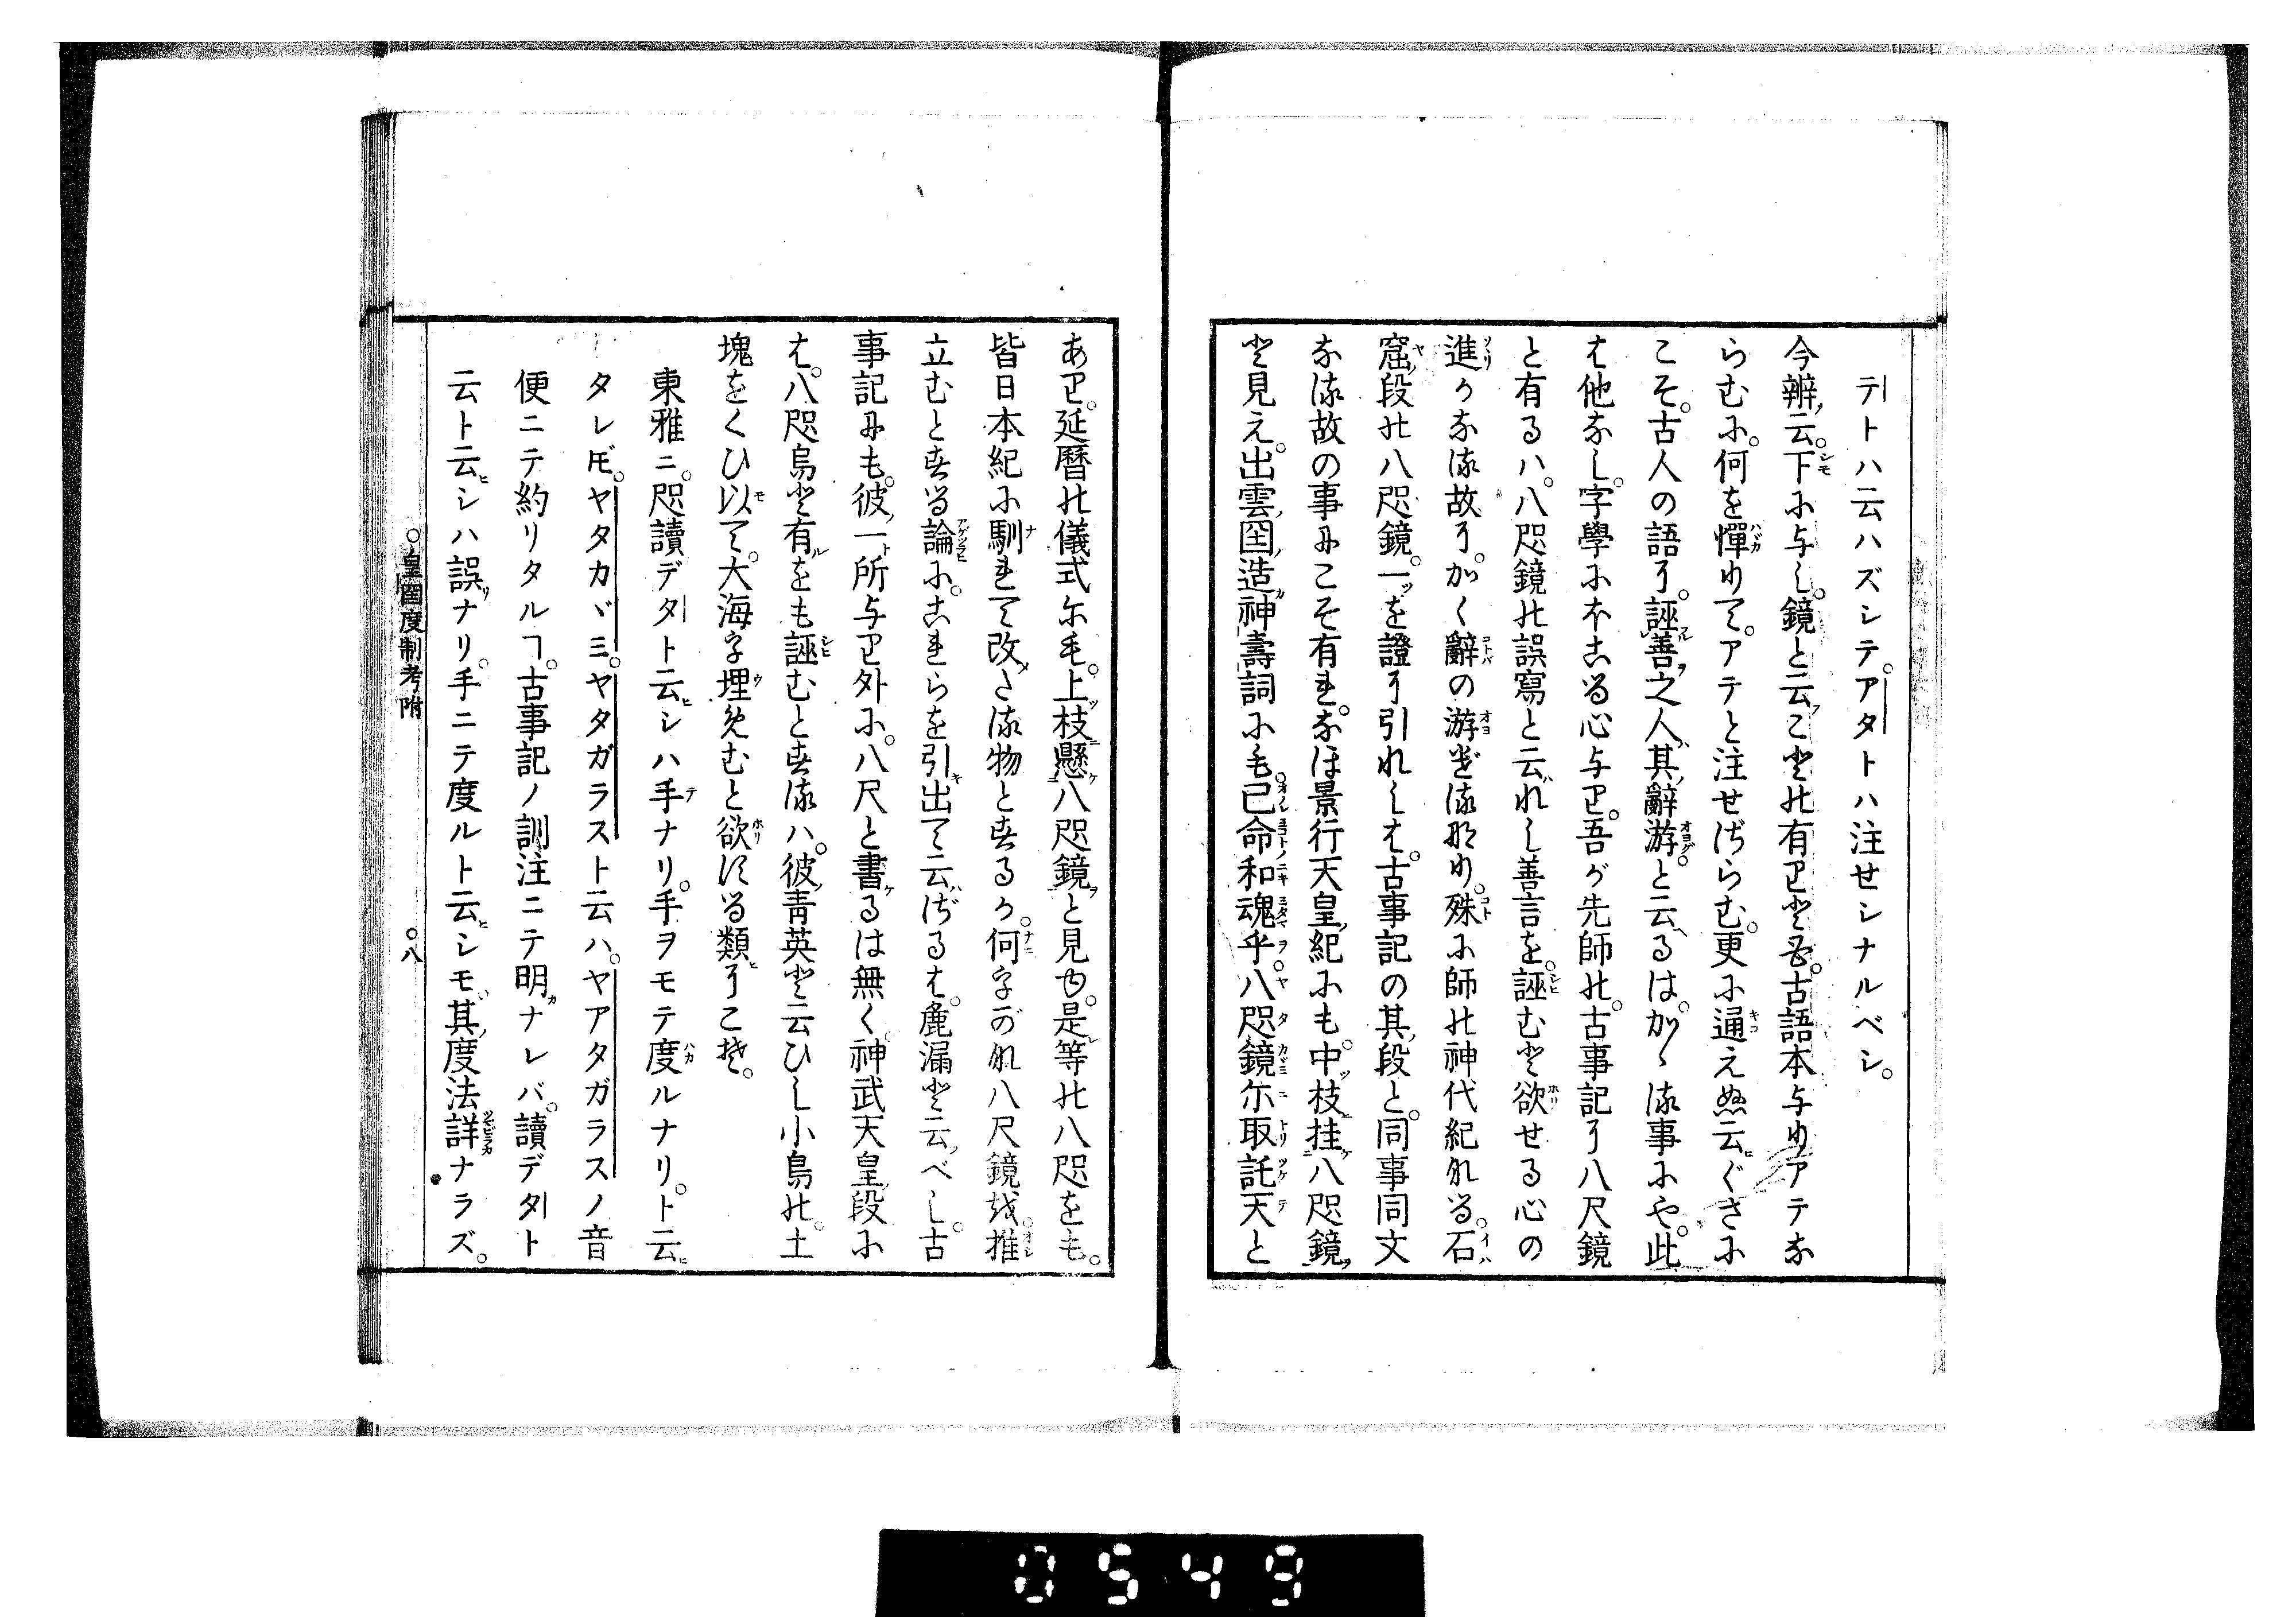 テトハ云ハズシテ。アタトハ注せシナルベシ。
今辨云。下に与し。鏡と云こと此有りとも。古語本よりアテな
らむに。何を憚りて。アテと注せざらむ。更に通えぬ云ぐさに
こそ。古人の語に。誣善之人其辭游と云るは。かゝる事にや。此
は他なし。字學にほこる心より。吾が先師の。古事記に八尺鏡
と有るハ。八咫鏡の誤寫と云れし善言を。誣むと欲せる心の
進りなる故に。かく辭の游ぎるなり。殊に師の神代紀なる。石
窟段の八咫鏡。一を證に引れしは。古事記の其段と。同事同文
なる故の事にこそ有れ。なほ景行天皇紀にも。中枝挂八咫鏡
と見え。出雲国造神壽詞にも。己命和魂乎八咫鏡尓取託天と
あり。延暦の儀式にも。上枝懸八咫鏡と見ゆ。是等の八咫をも。
皆日本紀に馴れて改たる物とするか。何字なれ八尺鏡を。推
立むとする論に。これらを引出て云ざるは。麁漏と云べし。古
事記にも。彼一所より外に。八尺と書るは無く。神武天皇段に
は。八咫烏と有をも誣むとするハ。彼青英と云ひし小鳥の。土
塊をくひ以て。大海字埋めむと欲ける類にこそ。
東雅ニ。咫讀デタト云シハ手ナリ。手ヲモテ度ルナリ。ト云
タレド。ヤタカヾミ。ヤタガラスト云ハ。ヤアタガラスノ音
便ニテ約リタルコ。古事記ノ訓注ニテ明ナレバ。讀デタト
云ト云シハ誤ナリ。手ニテ度ルト云シモ。其度法詳ナラズ。
○皇國度制考附 ○八
0549